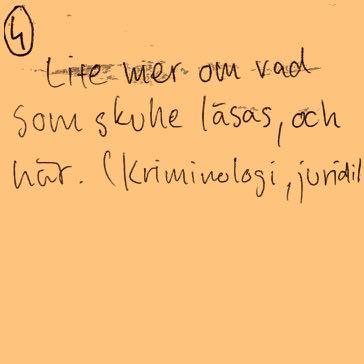 4
Lite mer om vad
som skulle läsas, och
när. (Kriminologi, juridik